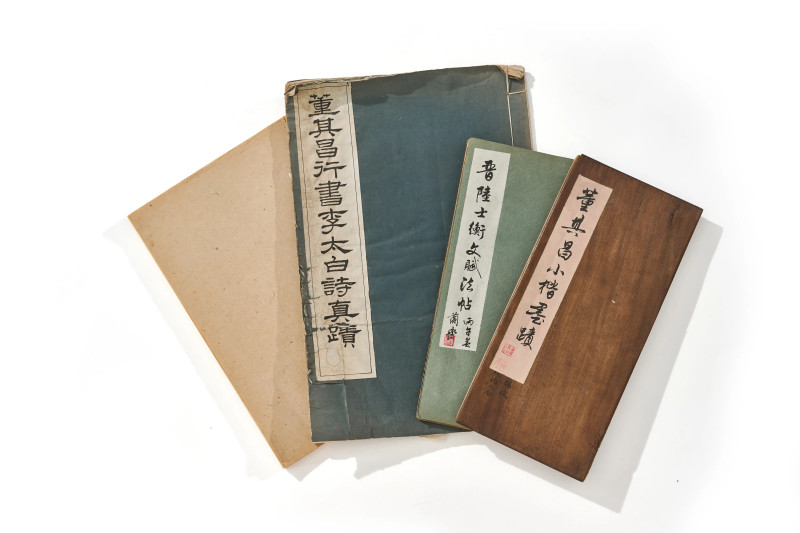 董其昌行書李太白詩真蹟
晉陸士衡文賦法帖
丙午冬
蕭齋
董其昌小楷墨蹟